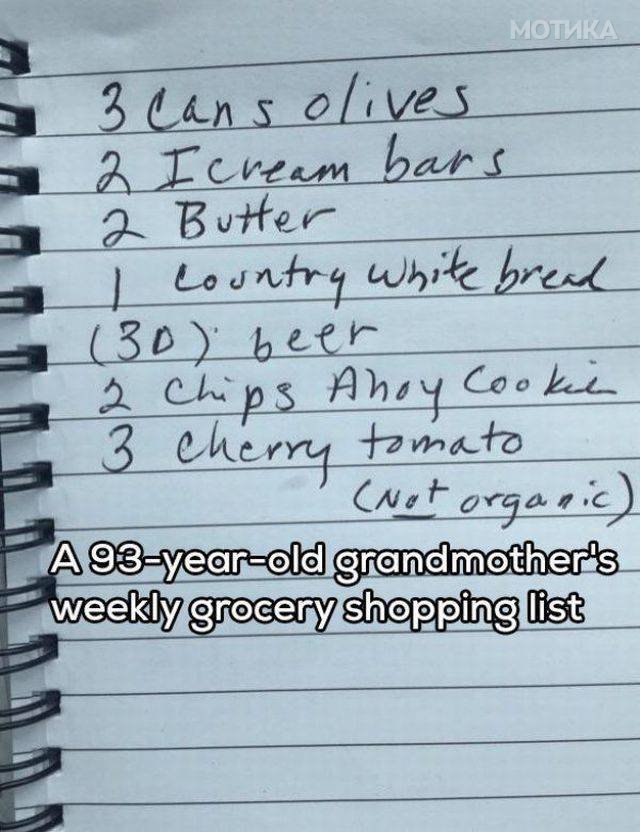 МОТИКА
3 Cans olives
2 Icream bars
2 Butter
1 Country White bread
(30) beer
2 Chips Ahoy Cookie
3 Cherry tomato
(Not organic)
A 93-year-old grandmother's
weekly grocery shopping list